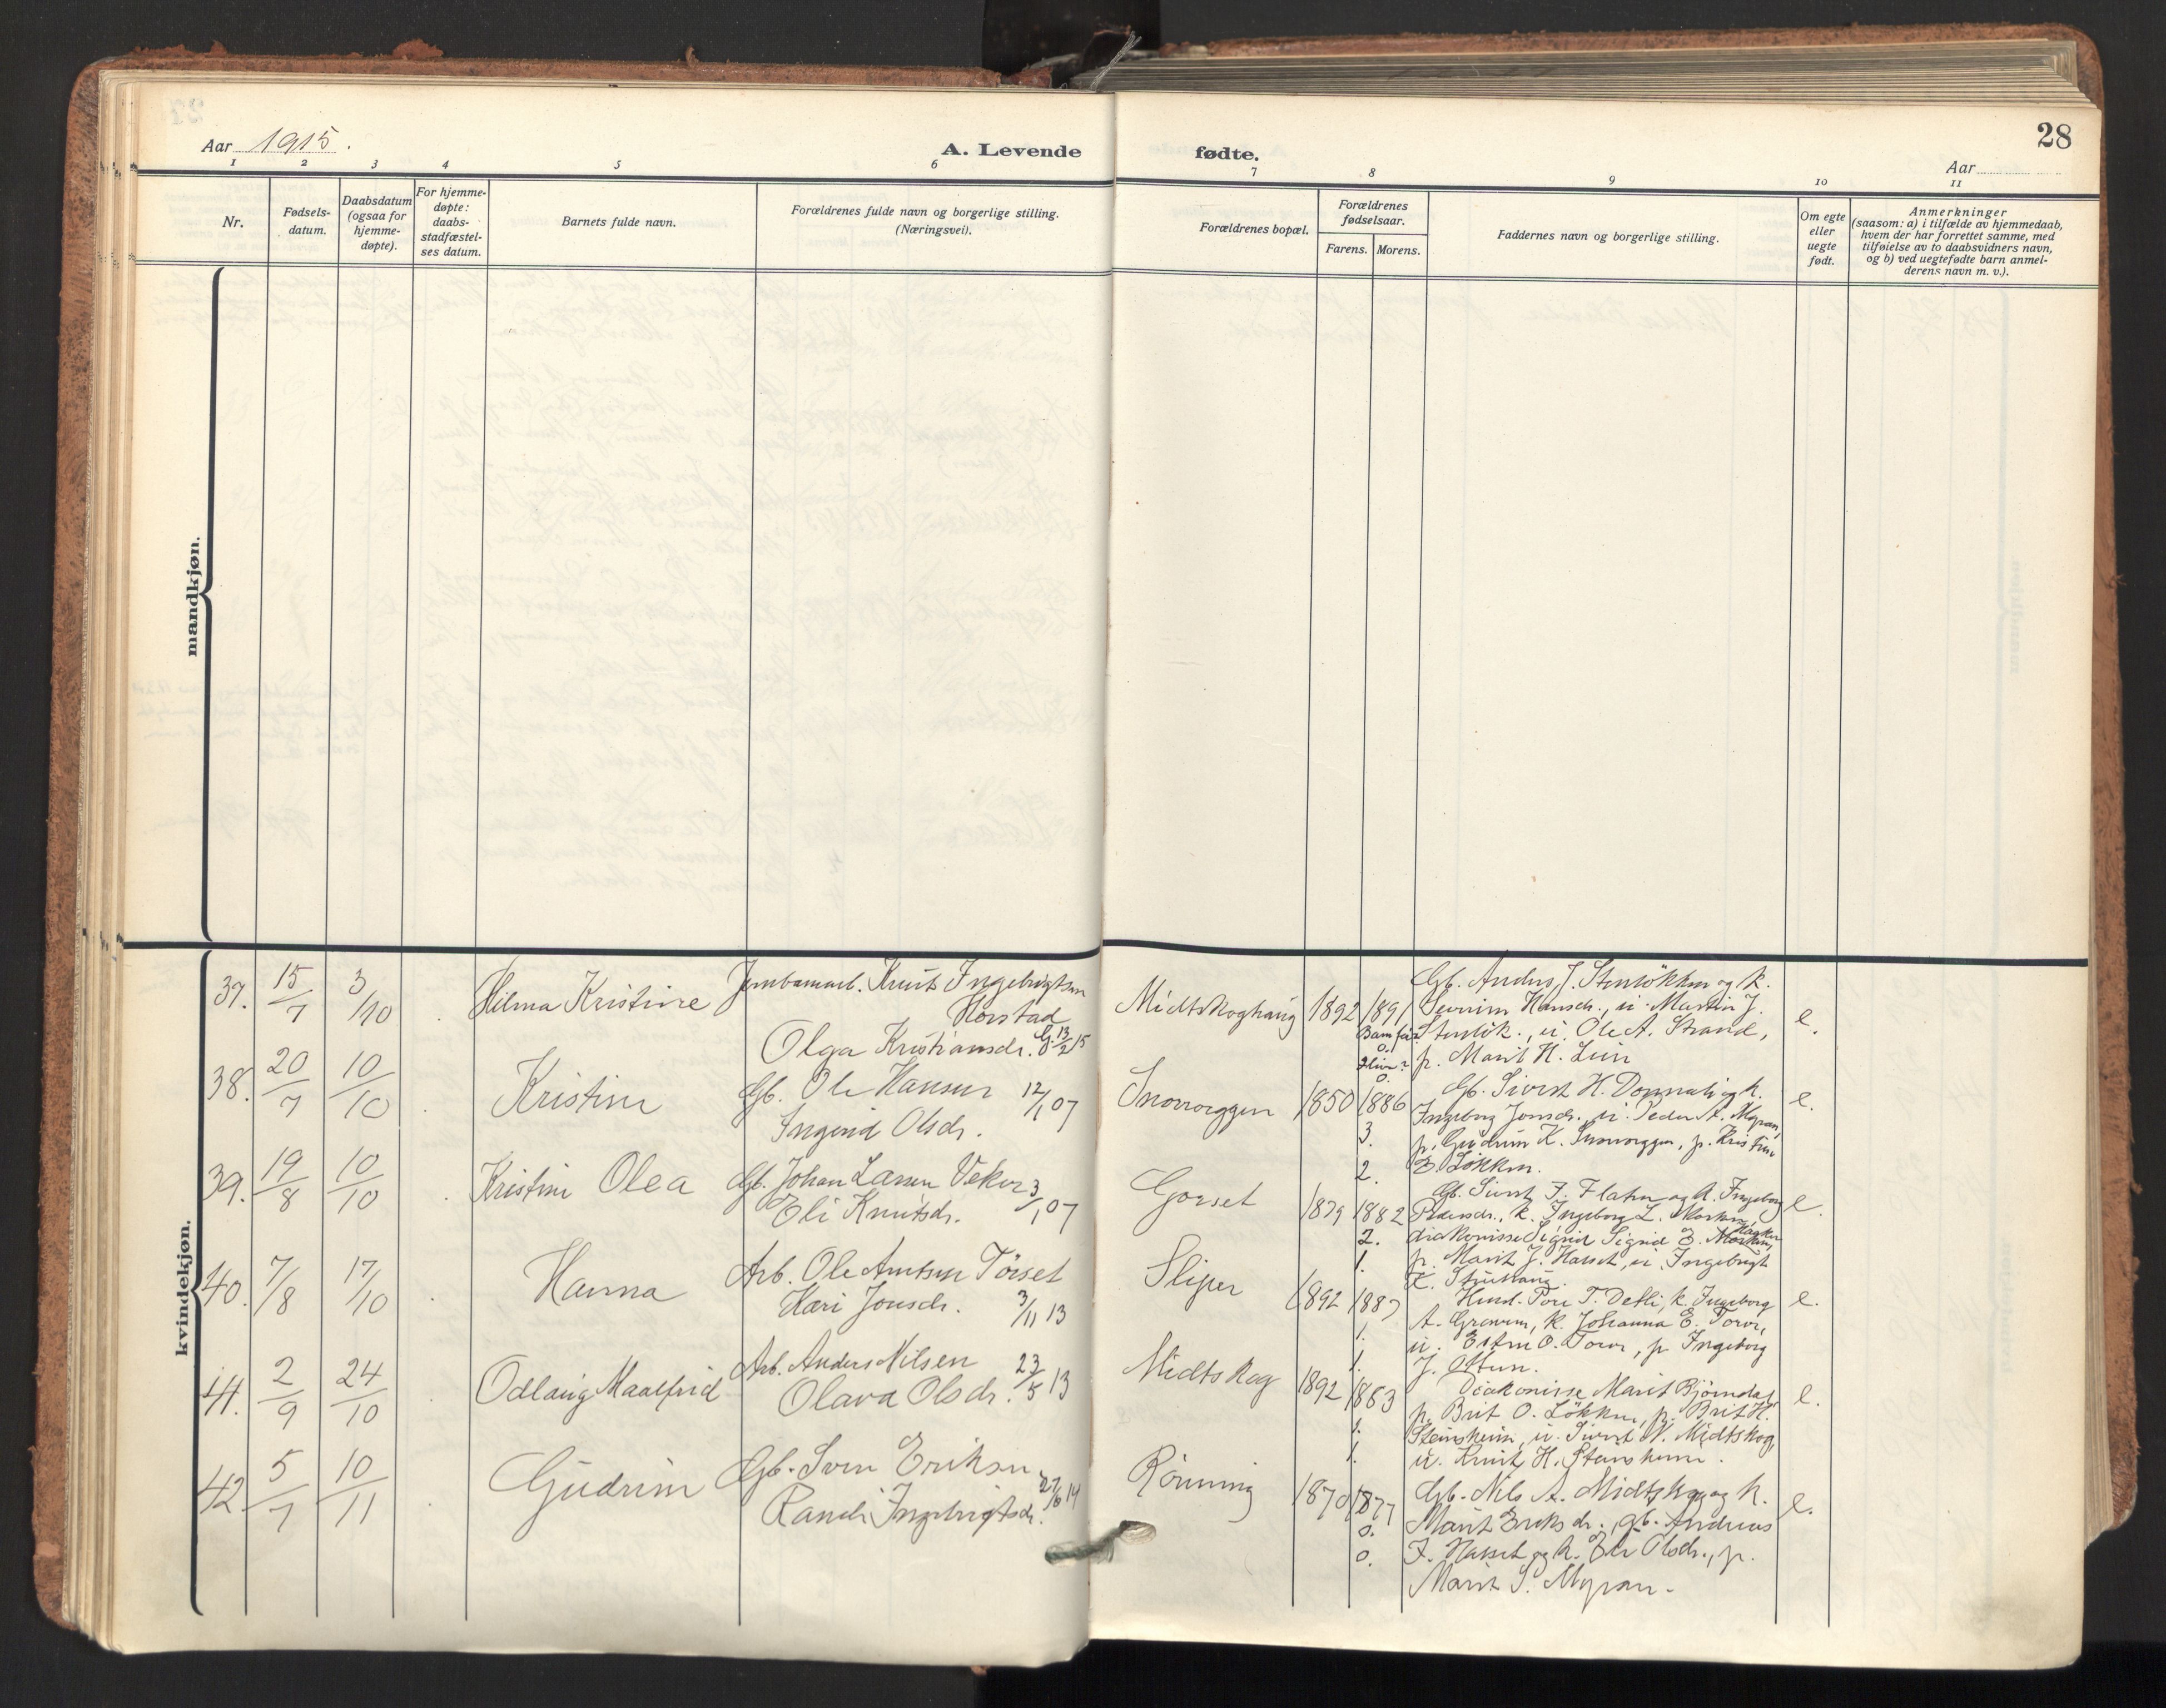 28
Aar 1915.
A. Levende
fødte.
Aar
1 2 3 4 5 6 7 8 9 10 11
Nr.
Fødsels-
datum.
Daabsdatum
(ogsaa for
hjemme-
døpte).
For hjemme-
døpte:
daabs-
stadfæstel-
ses datum.
Barnets fulde navn.
Forældrenes fulde navn og borgerlige stilling.
(Næringsvei).
Forældrenes bopæl.
Forældrenes
fødselsaar.
Farens. Morens.
Faddernes navn og borgerlige stilling.
Om egte
eller
uegte
født.
Anmerkninger
(saasom: a) i tilfælde av hjemmedaab,
hvem der har forrettet samme, med
tilføielse av to daabsvidners navn,
og b) ved uegtefødte barn anmel-
derens navn m. v.).
mandkjøn.
kvindekjøn.
37. 15/7 3/10 Hilma Kristine
Jernbanearb. Knut Ingebrigtsen
Horstad
Olga Kristiansdr. G. 13/2 15
Midtskoghaug 1892 1891
0.
0.
Gb. Anders J. Stenlökken og k.
Hansdr., u. Martin J.
Stenlök., u. Ole A. Strand,
p. Marit H. Lien
e.
38. 20/7 10/10 Kristine
Gb. Ole Hansen 12/1 07
Ingerid Olsdr.
Snoveggen 1850 1886
3.
2.
Gb. Sivert H. Donnali og k.
Ingeborg Jonsdr., u. Peder A. Myran,
p. Gudrun K. Snoveggen, p. Kristine
E. Lökken.
e.
39. 19/8 10/10 Kristine Olea
Gb. Johan Larsen Veker 3/1 07
Eli Knutsdr.
Gorset 1879 1882
2.
1.
Gb. Sivert J. Flaten og k. Ingeborg
Pedersdr., k. Ingeborg L.
diakonisse Sigrid Sigrid E.
p. Marit J. Hasset, u. Ingebrigt
K.
e.
40. 7/8 17/10 Hanna
Arb. Ole Arntsen Törset
Kari Jonsdr. 3/11 13
Sliper 1892 1887
1.
1.
Tore T. Detli, k. Ingeborg
A. Graven, k. Johanna E.
u. O. , p. Ingeborg
J.
e.
41. 2/9 24/10 Odlaug Maalfrid
Arb. Anders Nilsen 23/5 13
Olava Olsdr.
Midtskog 1892 1883
1.
1.
Diakonisse Marit Björndal,
p. Brit O. Lökken, p. Brit H.
Stensheim, u. Sivert N. Midtskog,
u. Knut H. Stensheim.
e.
42. 5/7 10/11 Gudrun
Gb. Sven Eriksen
Randi Ingebrigtsdr. 27/6 14
Rönning 1870 1877
0.
0.
Gb. Nils A. Midtskog og k.
Marit Eriksdr., gb. Andreas
J. Hasset og k. Eli Olsdr., p.
Marit S. Myran.
e.